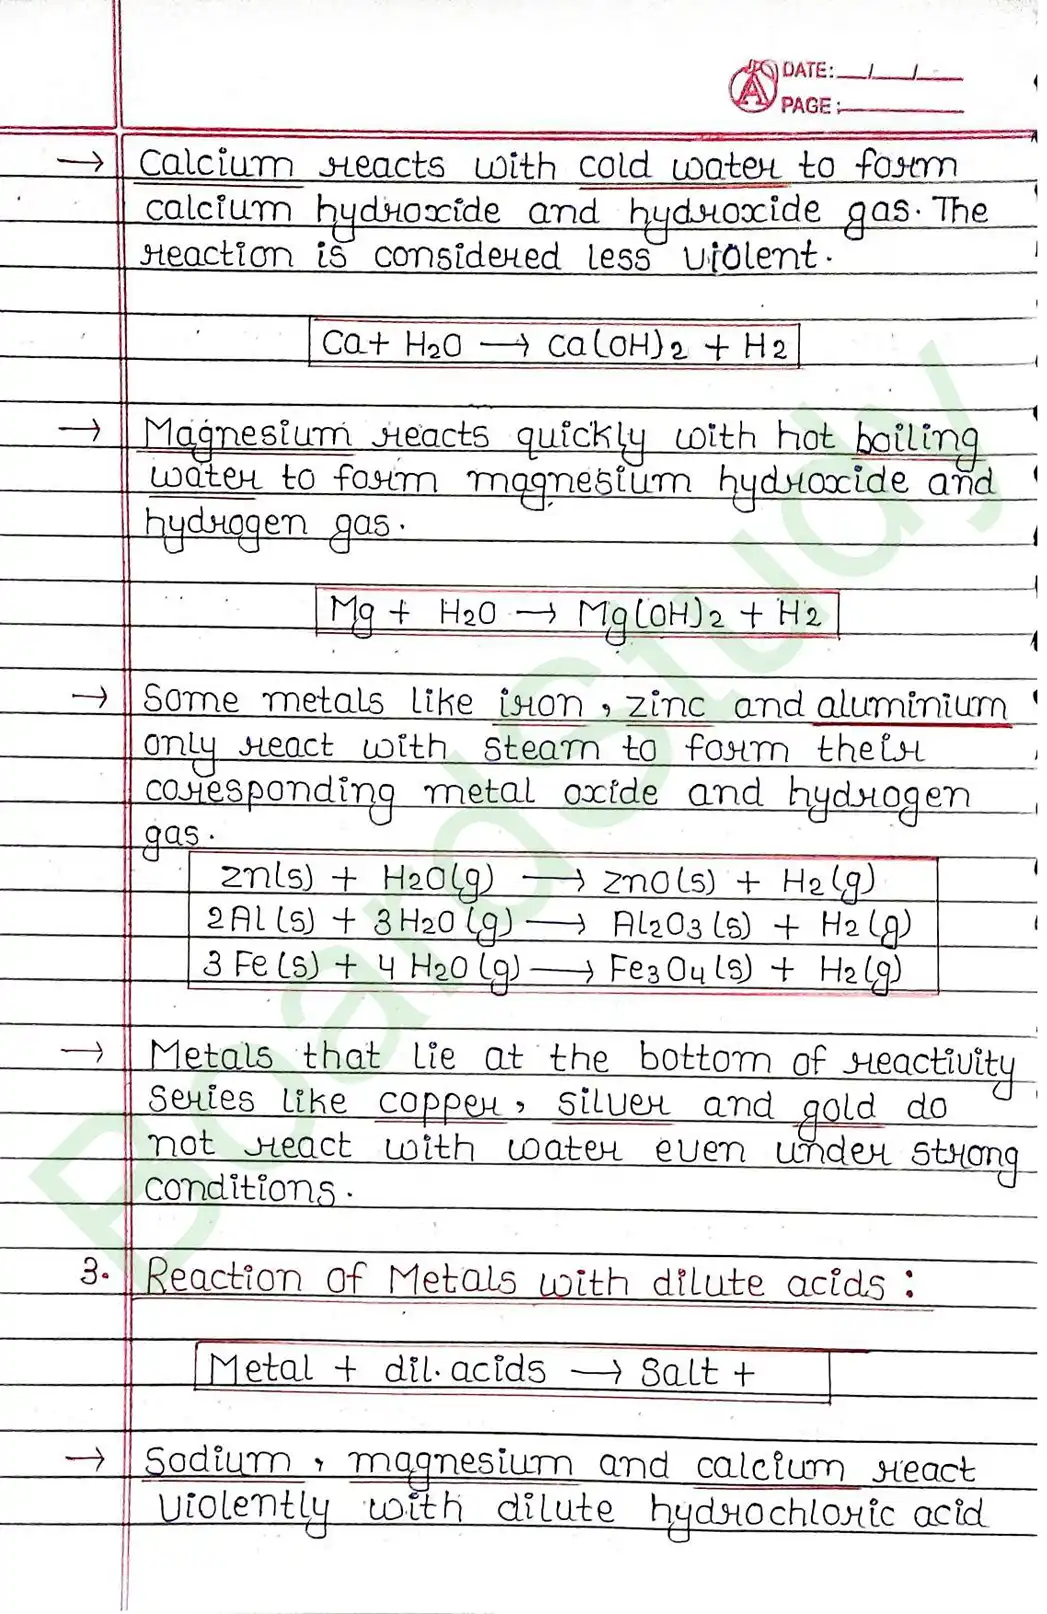 DATE: __/__/__
PAGE:
→ Calcium reacts with cold water to form
calcium hydroxide and hydroxide gas. The
reaction is considered less violent.
Ca + H2O → Ca(OH)2 + H2
→ Magnesium reacts quickly with hot boiling
water to form magnesium hydroxide and
hydrogen gas.
Mg + H2O → Mg(OH)2 + H2
→ Some metals like iron, zinc and aluminium
only react with steam to form their
corresponding metal oxide and hydrogen
gas.
Zn(s) + H2O(g) → ZnO(s) + H2(g)
2Al(s) + 3H2O(g) → Al2O3(s) + H2(g)
3Fe(s) + 4H2O(g) → Fe3O4(s) + H2(g)
→ Metals that lie at the bottom of reactivity
series like copper, silver and gold do
not react with water even under strong
conditions.
3. Reaction of Metals with dilute acids:
Metal + dil. acids → Salt +
→ Sodium, magnesium and calcium react
violently with dilute hydrochloric acid
BoardStudy